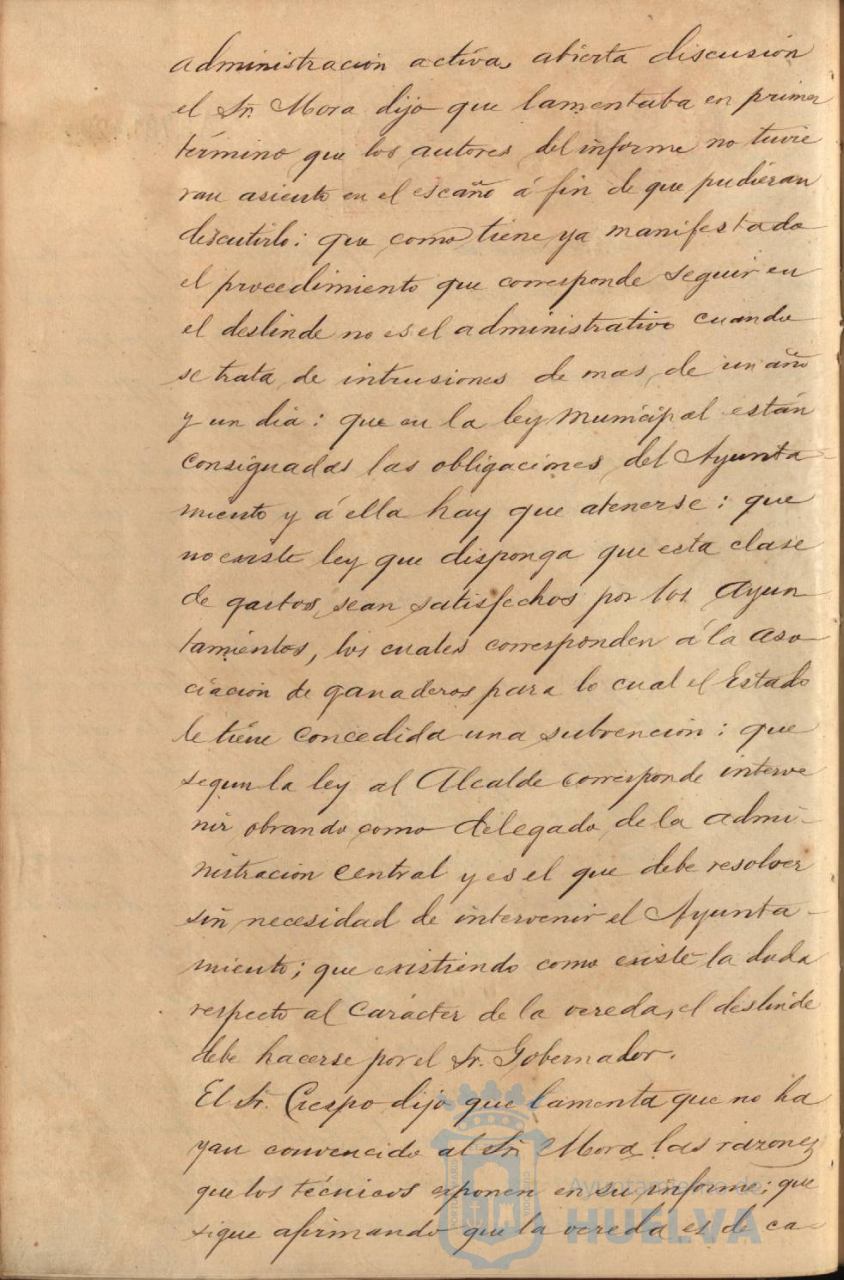 administracion activa, abierta discusión
el Sr. Mora dijo que lamentaba en primer
término que los autores del informe no tuvie
ran asiento en el escaño á fin de que pudieran
discutirlo: que como tiene ya manifestado
el procedimiento que corresponde seguir en
el deslinde no es el administrativo cuando
se trata de intrusiones de mas de un año
y un dia: que en la ley Municipal están
consignadas las obligaciones del Ayunta-
miento y á ella hay que atenerse: que
no existe ley que disponga que esta clase
de gastos sean satisfechos por los Ayun
tamientos, los cuales corresponden á la aso
ciación de ganaderos para lo cual el Estado
le tiene concedida una subvencion: que
segun la ley al Alcalde corresponde interve
nir obrando como delegado de la admi-
nistracion central y es el que debe resolver
sin necesidad de intervenir el Ayunta-
miento; que existiendo como existe la duda
respecto al carácter de la vereda, el deslinde
debe hacerse por el Sr. Gobernador.
El Sr. Crespo dijo que lamenta que no ha
yan convencido al Sr. Mora las razones
que los técnicos exponen en su informe; que
sigue afirmando que la vereda es de ca-
Ayuntamiento de
HUELVA